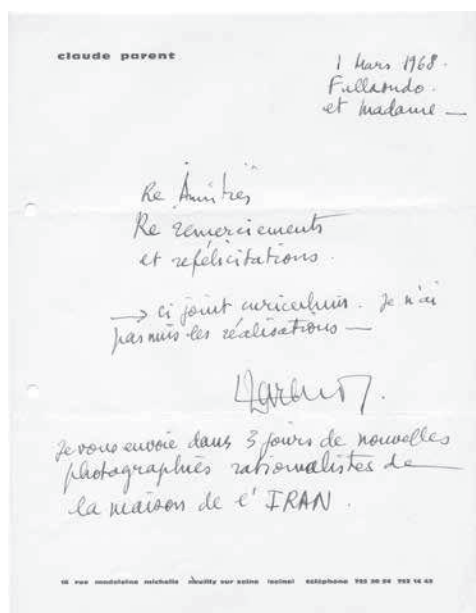 claude parent
1 Mars 1968.
Fullaondo.
et Madame —
Re Amitiés
Re remerciements
et refélicitations.
→ ci joint curiculum. Je n'ai
pas mis les réalisations —
Parent.
Je vous envoie dans 3 jours de nouvelles
photographies rationalistes de
la maison de l'IRAN.
rue madeleine michelis neuilly sur seine (seine) téléphone